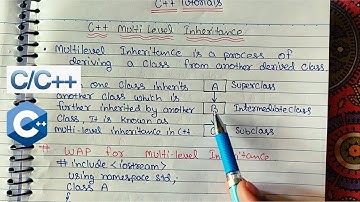 C++ Tutorials
C++ Multi Level Inheritance
• Multilevel Inheritance is a process of
deriving a class from another derived class.
C/C++
one class inherits
another class which is
further inherited by another
class. It is known as
multi-level inheritance in C++
A Superclass
B Intermediate Class
C Subclass
C++
# WAP for Multi-level Inheritance
# include <iostream>
using namespace std;
class A
{